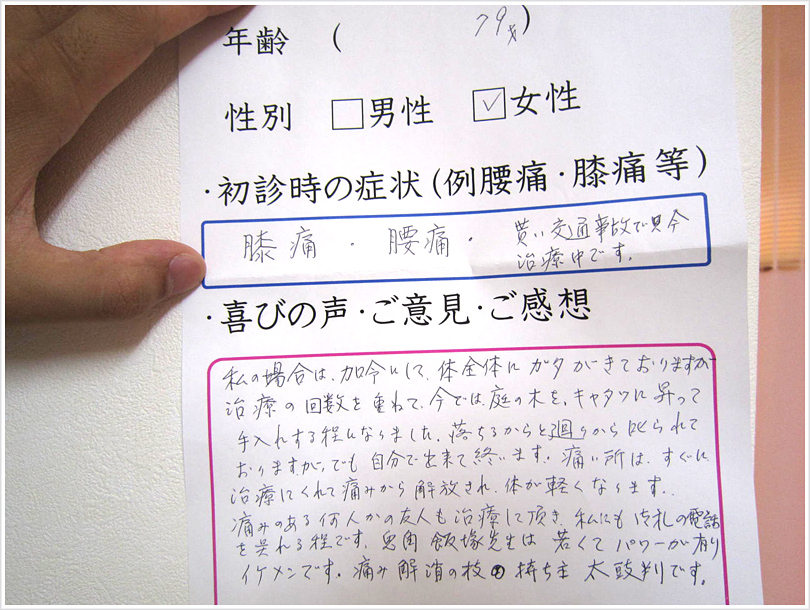 年齢 ( 79才)
性別 □男性 ☑女性
・初診時の症状(例腰痛・膝痛 等)
膝痛 ・ 腰痛 ・ 貰い交通事故で只今
治療中です。
・喜びの声・ご意見・ご感想
私の場合は、加令にて、体全体に ガタがきておりますが
治療の回数を重ねて、今では、庭の木を、キャタツに昇って
手入れする程になりました、落ちるからと廻りから叱られて
おりますが、でも 自分で出来て終います。痛い所は、すぐに
治療にくれて痛みから 解放され、体が軽くなります。
痛みのある何人かの友人も治療して頂き、私にも御礼の電話
を呉れる程です、 飯塚先生は 若くて パワーが有り
イケメンです。痛み解消の技の持ち主 太鼓判です。